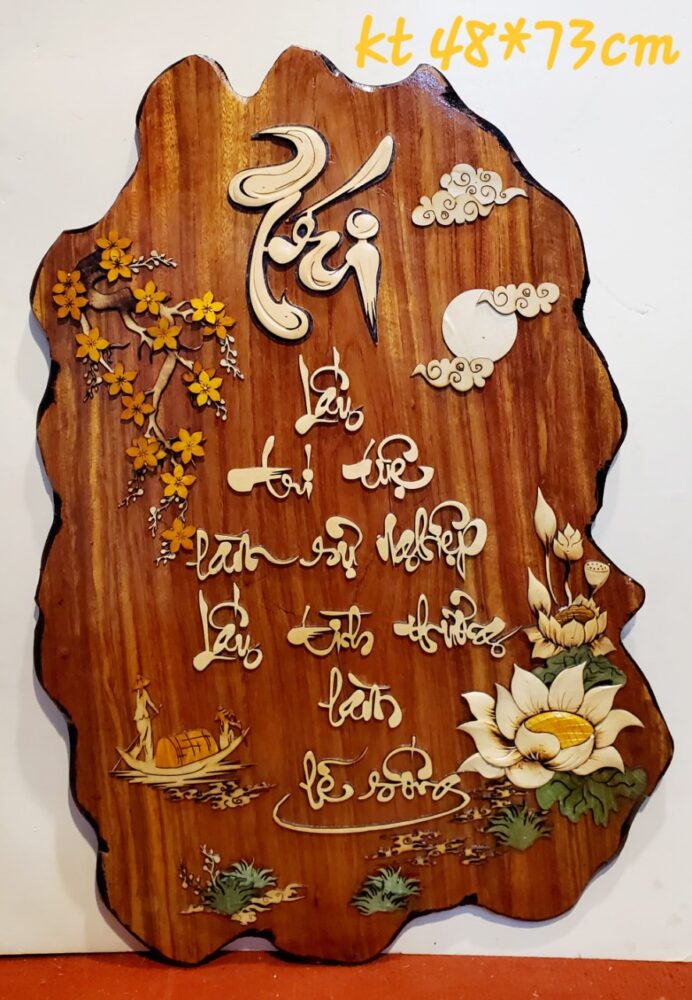 kt 48*73cm
Trí
Lấy
trí tuệ
làm sự nghiệp
Lấy tình thương
làm
lẽ sống